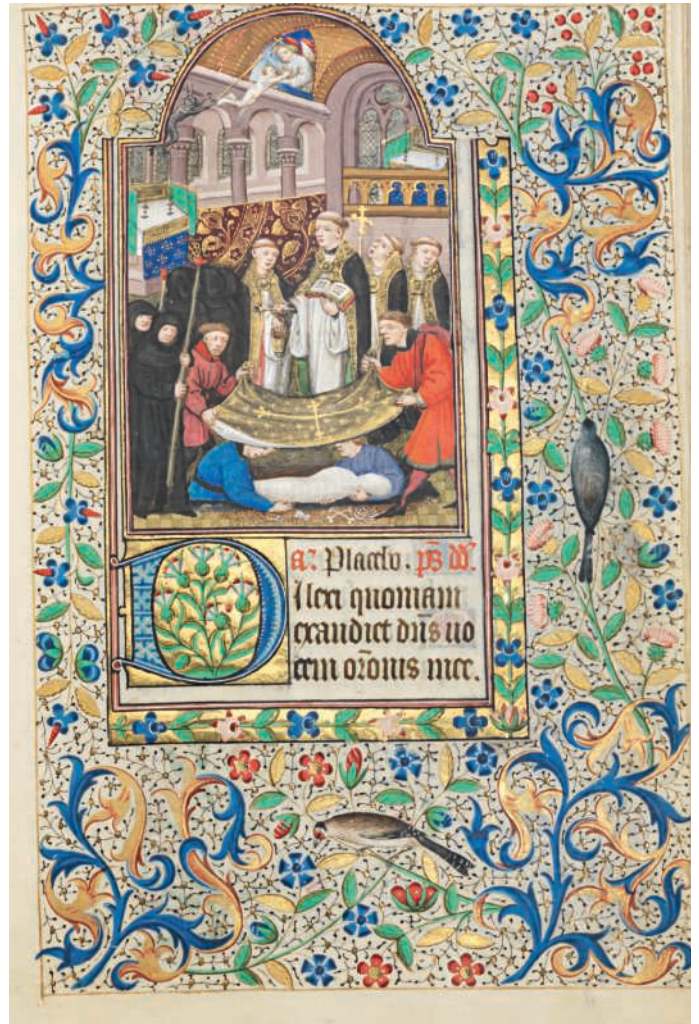 a: Placebo. ps̄ dd̄.
Dilexi quoniam
exaudiet dn̄s uo
cem or̄onis mee.